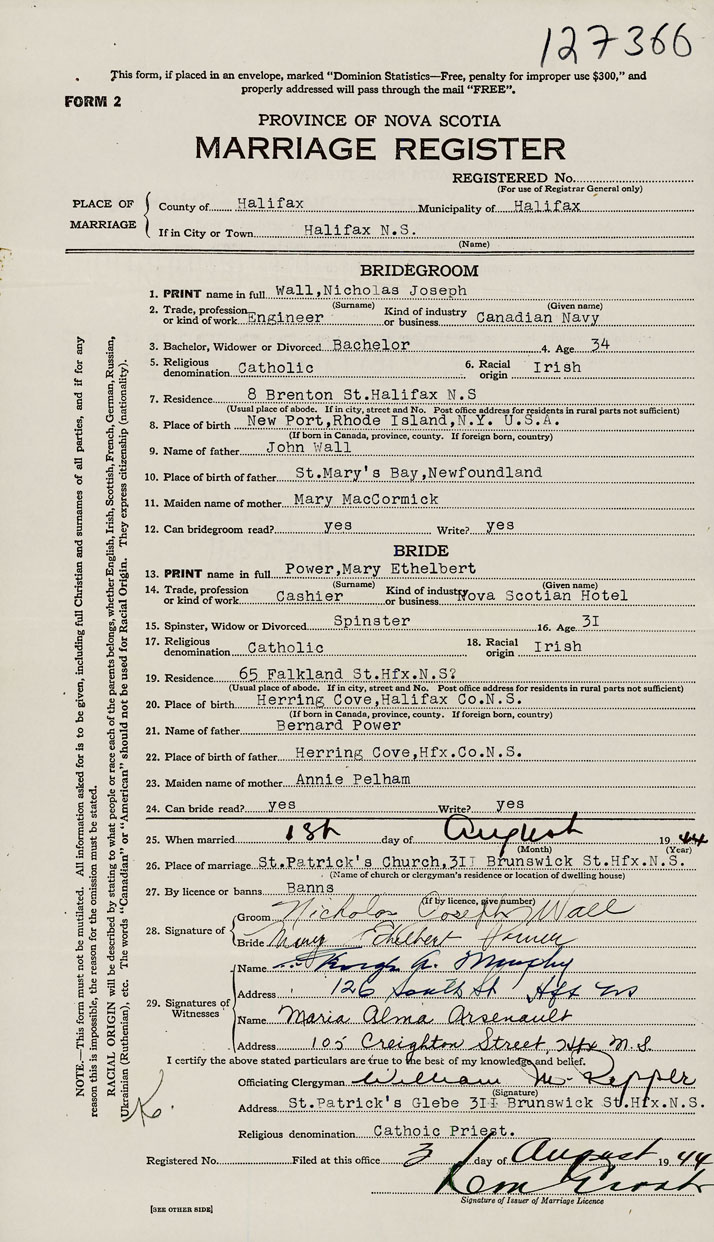 127366
This form, if placed in an envelope, marked "Dominion Statistics—Free, penalty for improper use $300," and
properly addressed will pass through the mail "FREE".
FORM 2
PROVINCE OF NOVA SCOTIA
MARRIAGE REGISTER
REGISTERED No.
(For use of Registrar General only)
PLACE OF MARRIAGE
County of Halifax Municipality of Halifax
If in City or Town Halifax N.S.
(Name)
BRIDEGROOM
1. PRINT name in full Wall,Nicholas Joseph
(Surname) (Given name)
2. Trade, profession or kind of work Engineer Kind of industry or business Canadian Navy
3. Bachelor, Widower or Divorced Bachelor 4. Age 34
5. Religious denomination Catholic 6. Racial origin Irish
7. Residence 8 Brenton St.Halifax N.S
(Usual place of abode. If in city, street and No. Post office address for residents in rural parts not sufficient)
8. Place of birth New Port,Rhode Island,N.Y. U.S.A.
(If born in Canada, province, county. If foreign born, country)
9. Name of father John Wall
10. Place of birth of father St.Mary's Bay,Newfoundland
11. Maiden name of mother Mary MacCormick
12. Can bridegroom read? yes Write? yes
BRIDE
13. PRINT name in full Power,Mary Ethelbert
(Surname) (Given name)
14. Trade, profession or kind of work Cashier Kind of industry or business Nova Scotian Hotel
15. Spinster, Widow or Divorced Spinster 16. Age 3I
17. Religious denomination Catholic 18. Racial origin Irish
19. Residence 65 Falkland St.Hfx.N.S?
(Usual place of abode. If in city, street and No. Post office address for residents in rural parts not sufficient)
20. Place of birth Herring Cove,Halifax Co.N.S.
(If born in Canada, province, county. If foreign born, country)
21. Name of father Bernard Power
22. Place of birth of father Herring Cove,Hfx.Co.N.S.
23. Maiden name of mother Annie Pelham
24. Can bride read? yes Write? yes
25. When married 1st day of August 19 44
(Month) (Year)
26. Place of marriage St.Patrick's Church,3II Brunswick St.Hfx.N.S.
(Name of church or clergyman's residence or location of dwelling house)
27. By licence or banns Banns
(If by licence, give number)
28. Signature of
Groom Nicholas Joseph Wall
Bride Mary Ethelbert Power
29. Signatures of Witnesses
Name George A. Murphy
Address 126 South St Hfx NS
Name Maria Alma Arsenault
Address 105 Creighton Street, Hfx N.S.
I certify the above stated particulars are true to the best of my knowledge and belief.
Officiating Clergyman William M.
(Signature)
Address St.Patrick's Glebe 3II Brunswick St.Hfx.N.S.
Religious denomination Cathoic Priest.
Registered No. Filed at this office 3 day of August 19 44
Signature of Issuer of Marriage Licence
[SEE OTHER SIDE]
NOTE.—This form must not be mutilated. All information asked for is to be given, including full Christian and surnames of all parties, and if for any
reason this is impossible, the reason for the omission must be stated.
RACIAL ORIGIN will be described by stating to what people or race each of the parents belongs, whether English, Irish, Scottish, French, German, Russian,
Ukrainian (Ruthenian), etc. The words "Canadian" or "American" should not be used for Racial Origin. They express citizenship (nationality).